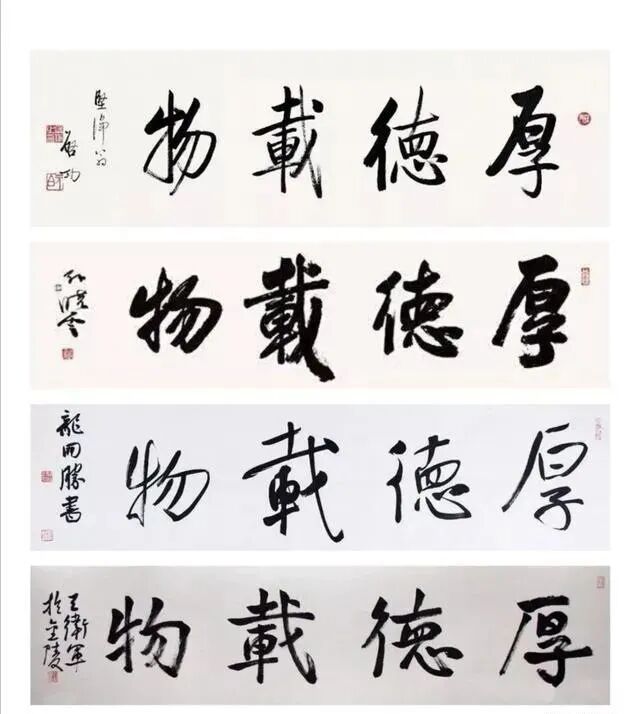 厚德載物
堅淨翁
啟功
厚德載物
孙晓云
厚德載物
龍開勝書
厚德載物
王衛軍
於金陵